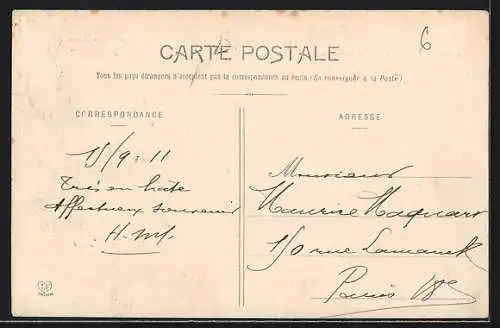 6
CARTE POSTALE
Tous les pays étrangers n'acceptent pas la correspondance au recto (Se renseigner à la Poste)
CORRESPONDANCE
ADRESSE
15/9.11
Très en hâte
Affectueux souvenir
Monsieur
Maurice
rue Lamarck
Paris